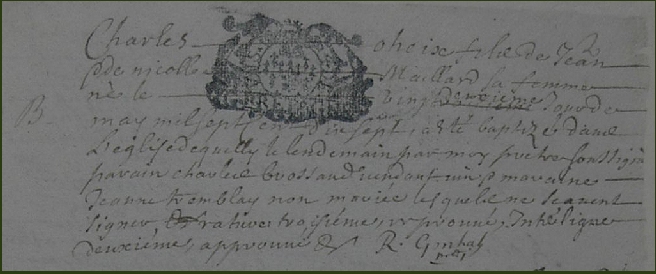 Charles choix filz de Jean
& de nicolle Maillard sa femme
né le vingt deuxième Jour de
B
may mil sept cent dix sept, a esté baptizé dans
L'église de quelly le lendemain par moy prêtre soussigné
parain charles brossaud maraine
Jeanne tremblay non mariée lesquels ne scavent
signer, troisième, approuvé, Interligne
deuxième, approuvé & R.